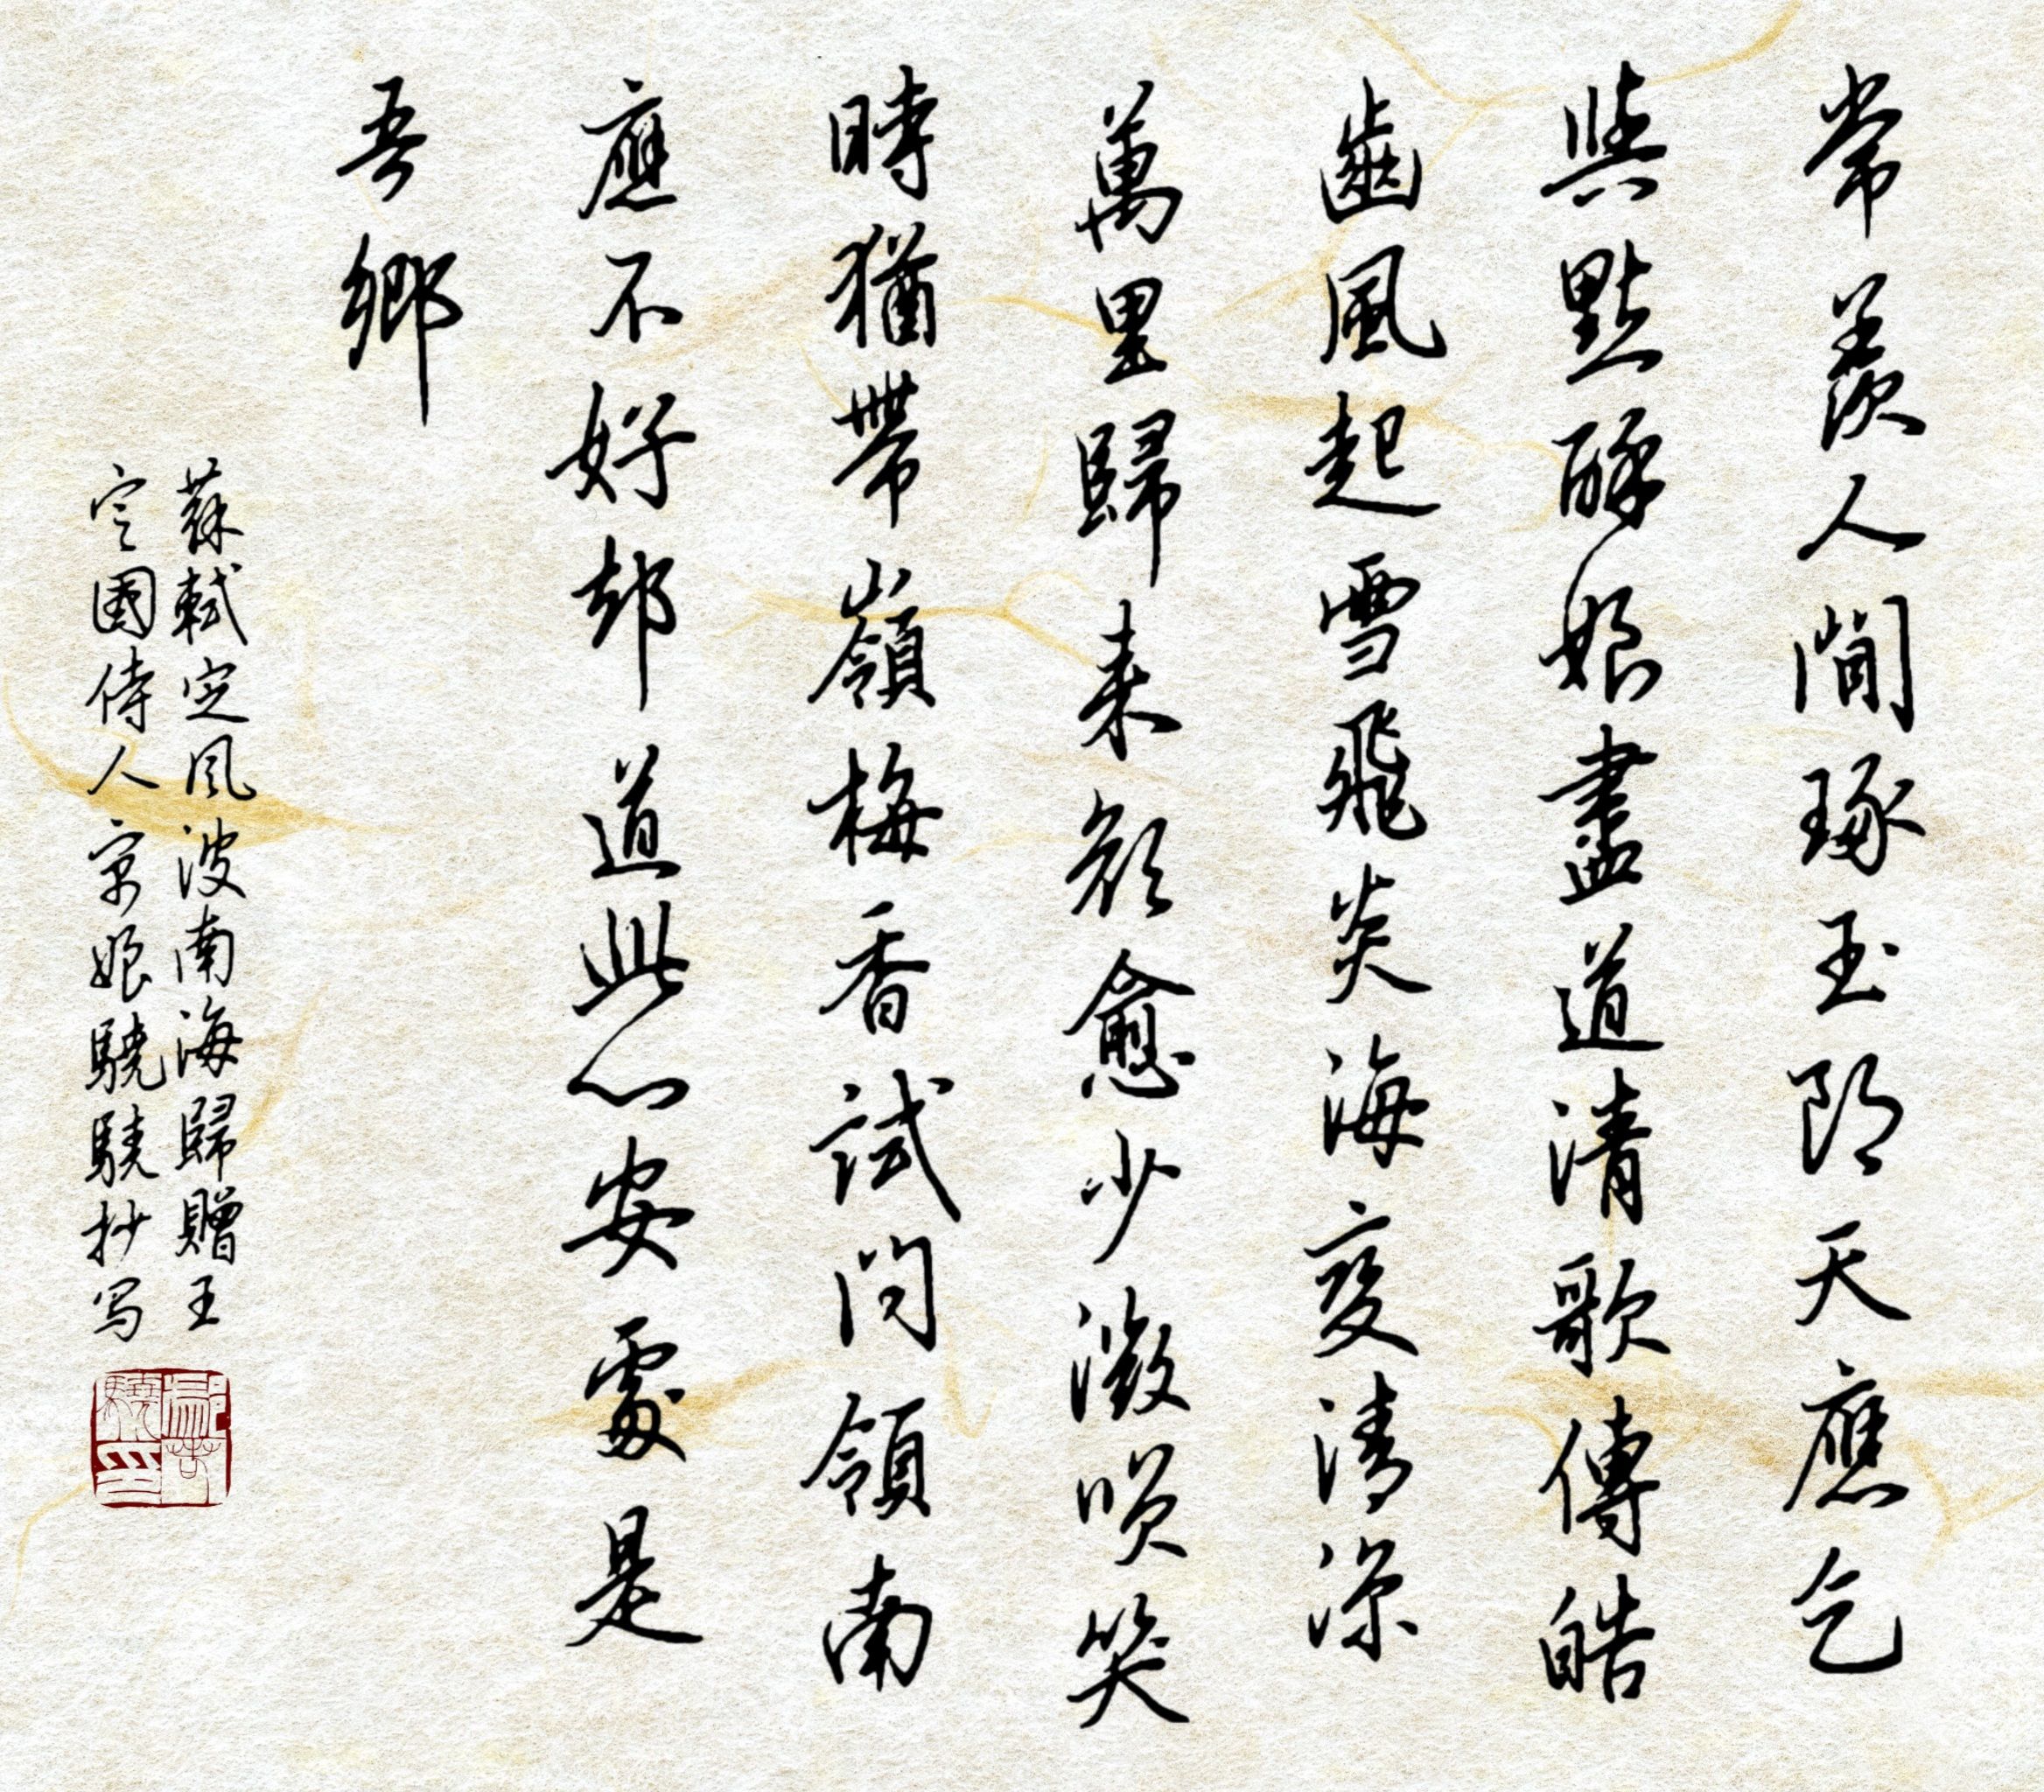 常羨人間琢玉郎天應乞
與點酥娘盡道清歌傳皓
齒風起雪飛炎海變清涼
萬里歸来顔愈少微笑
時猶帶嶺梅香試问領南
應不好却道此心安處是
吾鄉
蘇軾定风波南海歸贈王
定國侍人寓娘驍驍抄写